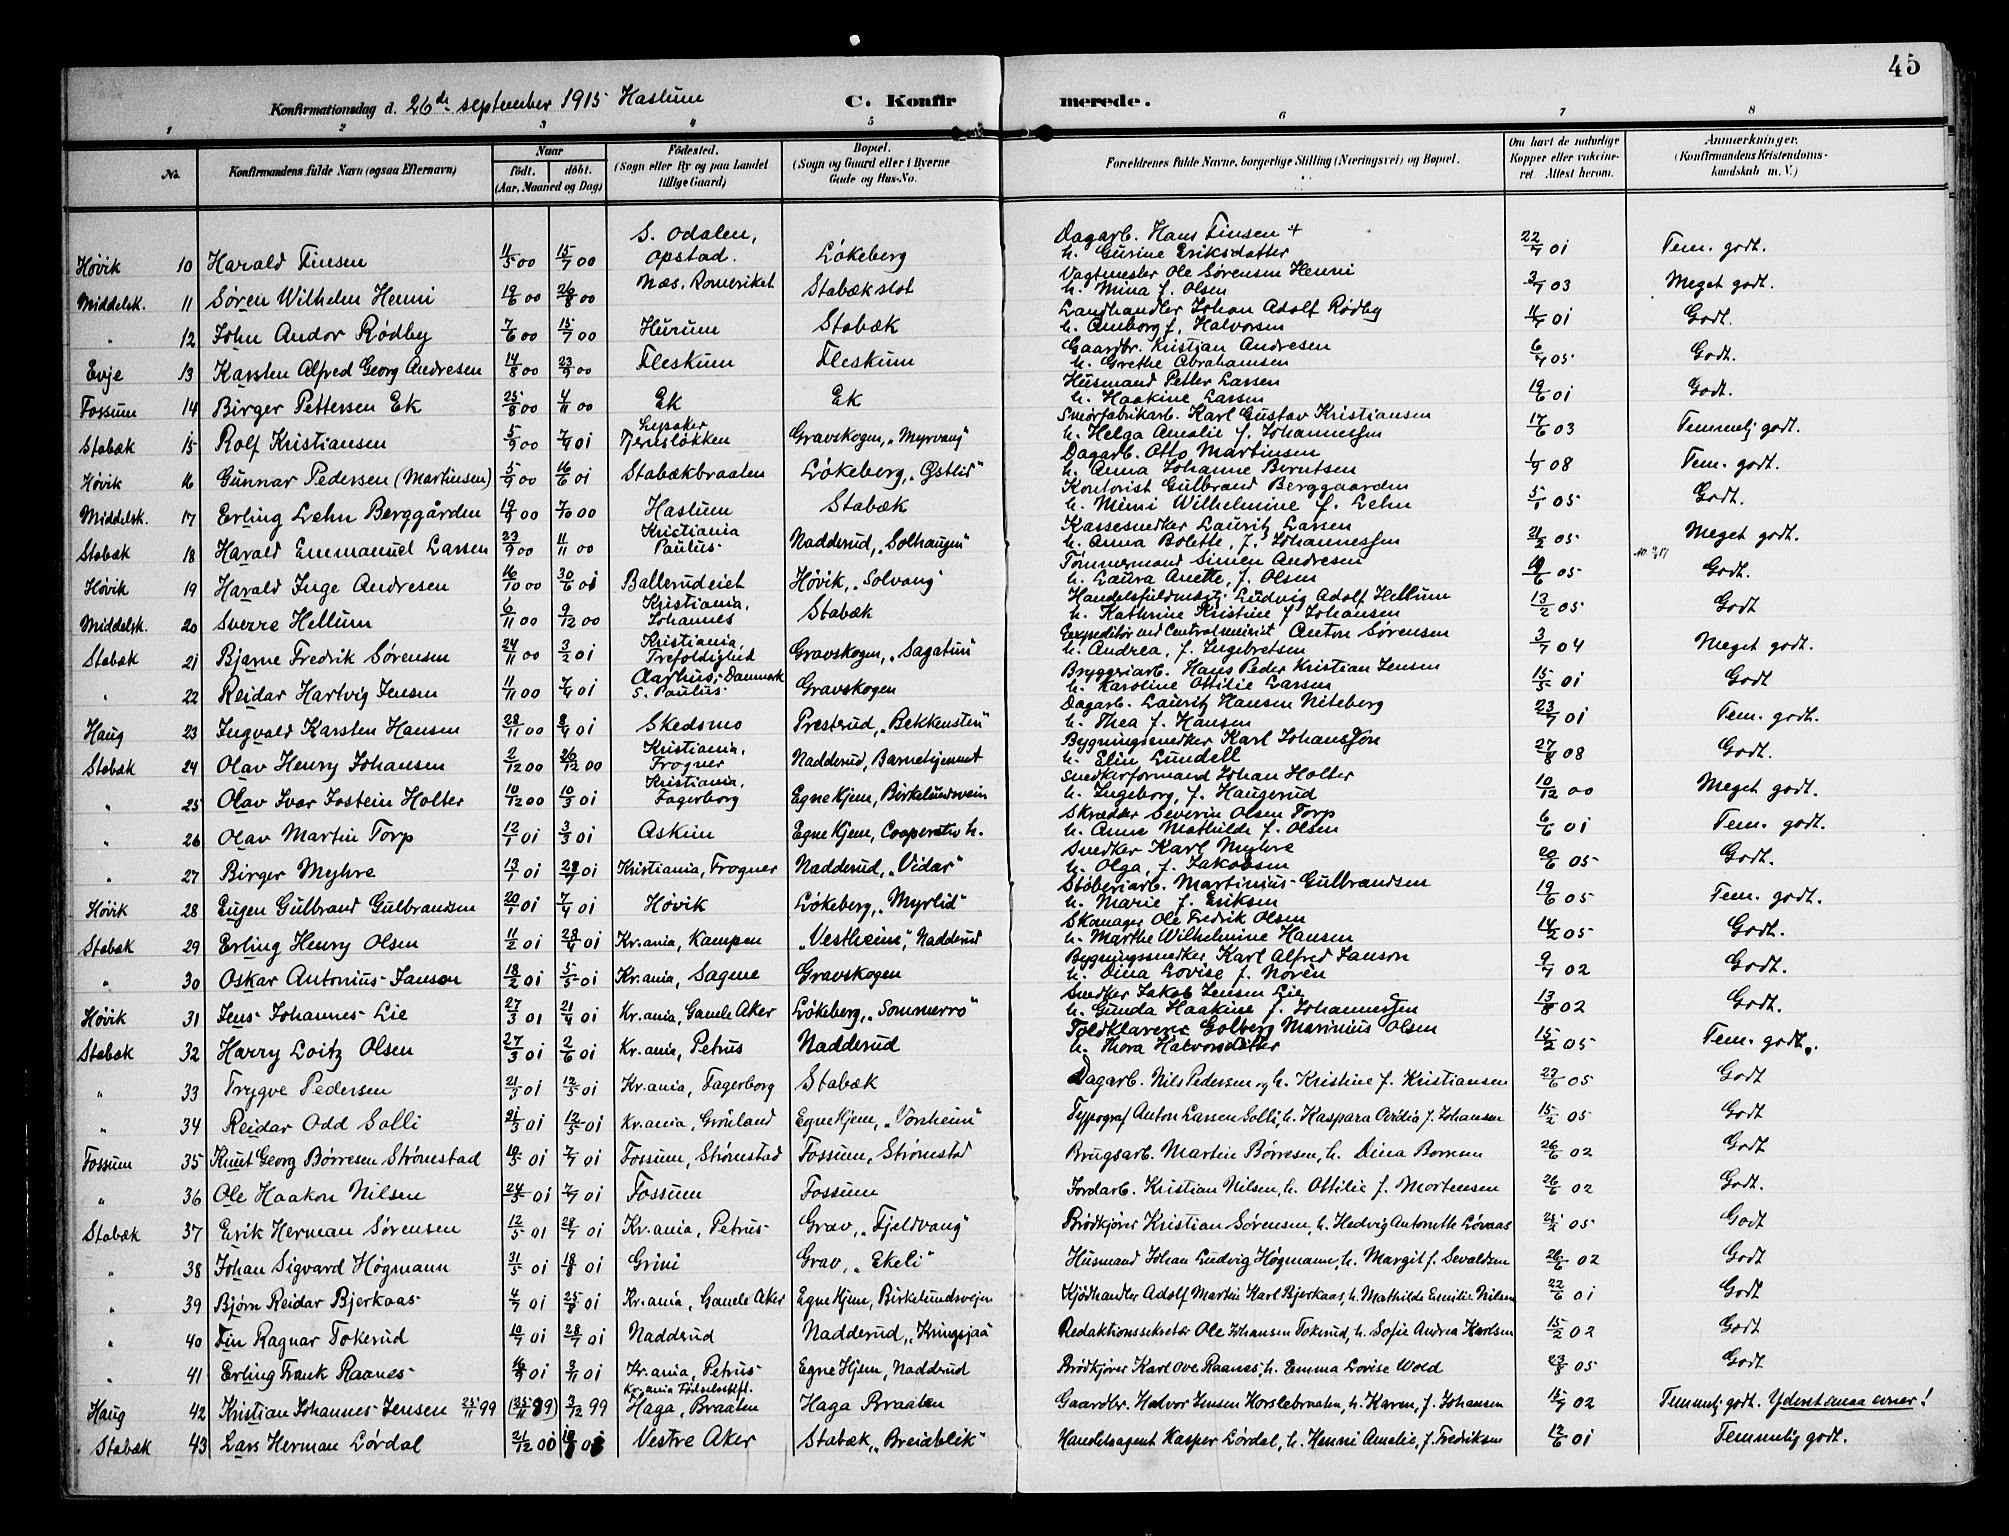 45
Konfirmationsdag d. 26de september 1915 Haslum C. Konfir merede.
1 2 3 4 5 6 7 8
No. Konfirmandens fulde Navn (ogsaa Efternavn) Naar født. døbt. (Aar, Maaned og Dag) Fødested. (Sogn eller By og paa Landet tillige Gaard) Bopæl. (Sogn og Gaard eller i Byerne Gade og Hus-No. Forældrenes fulde Navne, borgerlige Stilling (Næringsvei) og Bopæl. Om havt de naturlige Kopper eller vakcineret. Attest herom. Anmærkninger. (Konfirmandens Kristendomskundskab m. V.)
Høvik 10 Harald Finsen 11/5 00 15/7 00 S. Odalen, Opstad. Løkeberg Dagarb. Hans Finsen + h. Gurine Eriksdatter 22/7 01 Tem. godt.
Middelsk. 11 Søren Wilhelm Henni 19/6 00 26/8 00 Næs. Romeriket Stabækslot Vagtmester Ole Sørensen Henni h. Mina f. Olsen 3/7 03 Meget godt.
" 12 John Andor Rødby 7/6 00 15/7 00 Hurum Stabæk Landhandler Johan Adolf Rødby h. Amborg f. Halvorsen 11/7 01 Godt.
Evje 13 Karsten Alfred Georg Andresen 14/8 00 23/9 00 Fleskum Fleskum Gaardbr. Kristian Andresen h. Grethe Abrahamsen 6/7 05 Godt.
Fossum 14 Birger Pettersen Ek 25/8 00 4/11 00 Ek Ek Husmand Petter Larsen h. Haakine Larsen 19/6 01 Godt.
Stabæk 15 Rolf Kristiansen 5/9 00 7/4 01 Lysaker Tjernsløkken Gravskogen, "Myrvang" Smørfabrikarb. Karl Gustav Kristiansen h. Helga Amalie f. Johannessen 17/6 03 Temmelig godt.
Høvik 16 Gunnar Pedersen (Martinsen) 5/9 00 16/6 01 Stabækbraaten Løkeberg, "Østlid" Dagarb. Otto Martinsen h. Anna Johanne Berntsen 1/9 08 Tem. godt.
Middelsk. 17 Erling Lehn Berggården 19/9 00 7/10 00 Haslum Stabæk Kontorist Gulbrand Berggaarden h. Mimi Wilhelmine f. Lehn 5/1 05 Godt.
Stabæk 18 Harald Emmanuel Larsen 23/9 00 11/11 00 Kristiania Paulus Nadderud, "Solhaugen" Kassesnedker Lauritz Larsen h. Anna Bolette, f. Johannessen 21/2 05 Meget godt.
Høvik 19 Harald Inge Andresen 16/10 00 30/6 01 Ballerudeiet Høvik, "Solvang" Tømmermand Simen Andresen h. Laura Anette, f. Olsen 19/6 05 Godt.
Middelsk. 20 Sverre Hellum 6/11 00 9/12 00 Kristiania, Johannes Stabæk Handelsfuldmægt. Ludvig Adolf Hellum h. Kathrine Kristine f. Johansen 13/2 05 Godt
Stabæk 21 Bjarne Fredrik Sørensen 24/11 00 3/2 01 Kristiania, Trefoldighed Gravskogen, "Sagatun" Expeditør ved Centralmeieriet Anton Sørensen h. Andrea, f. Ingebretsen 3/7 04 Meget godt.
" 22 Reidar Hartvig Jensen 11/11 00 7/4 01 Aarhus, Danmark S. Paulus Gravskogen Bryggeriarb. Hans Peder Kristian Jensen h. Karoline Ottilie Larsen 15/5 01 Godt
Haug 23 Ingvald Karsten Hansen 28/11 00 8/4 01 Skedsmo Presterud, "Bekkensten" Dagarb. Lauritz Hansen Niteberg h. Thea f. Hansen 23/7 01 Tem. godt.
Stabæk 24 Olav Henry Johansen 2/12 00 26/12 00 Kristiania, Frogner Nadderud, Barnehjemmet Bygningssnedker Karl Johansson h. Elin Lundell 27/8 08 Godt.
" 25 Olav Ivar Jostein Holter 10/12 00 10/3 01 Kristiania, Fagerborg Egne Hjem, Birkelundsvein Snedkerformand Johan Holter h. Ingeborg, f. Haugerud 10/12 00 Meget godt.
" 26 Olav Martin Torp 12/1 01 3/3 01 Askim Egne Hjem, Cooperativ h. Skrædder Severin Olsen Torp h. Anne Mathilde f. Olsen 6/6 01 Tem. godt.
" 27 Birger Myhre 13/1 01 28/7 01 Kristiania, Frogner Nadderud, "Vidar" Snedker Karl Myhre h. Olga, f. Jakobsen 20/6 05 Godt.
Høvik 28 Eugen Gulbrand Gulbrandsen 20/1 01 7/4 01 Høvik Løkeberg, "Myrlid" Støberiarb. Martinius Gulbrandsen h. Marie f. Eriksen 19/6 05 Tem. godt.
Stabæk 29 Erling Henry Olsen 11/2 01 28/4 01 Kr.ania, Kampen "Vestheim", Nadderud Skomager Ole Fredrik Olsen h. Marthe Wilhelmine Hansen 14/2 05 Godt.
" 30 Oskar Antonius Janson 18/2 01 5/5 01 Kr.ania, Sagene Gravskogen Bygningssnedker Karl Alfred Janson h. Dina Lovise f. Norén 9/7 02 Godt.
Høvik 31 Jens Johannes Lie 27/3 01 21/4 01 Kr.ania, Gamle Aker Løkeberg, "Sommerro" Snedker Jakob Jensen Lie h. Gunda Haakine f. Johannessen 13/8 02 Godt.
Stabæk 32 Harry Loitz Olsen 27/3 01 2/6 01 Kr.ania, Petrus Nadderud Toldklarerer Golberg Marinius Olsen h. Thora Halvorsdatter 15/2 05 Tem. godt.
" 33 Trygve Pedersen 21/3 01 12/5 01 Kr.ania, Fagerborg Stabæk Dagarb. Nils Pedersen og h. Kristine f. Kristiansen 29/6 05 Godt
" 34 Reidar Odd Solli 21/3 01 12/5 01 Kr.ania, Grønland Egne Hjem, "Vonheim" Typograf Anton Larsen Solli, h. Kaspara Ovidia f. Johansen 15/2 05 Godt
Fossum 35 Knut Georg Børresen Strømstad 10/5 01 7/7 01 Fossum, Strømstad Fossum, Strømstad Brugsarb. Martin Børresen, h. Dina Børresen 26/6 02 Godt
" 36 Ole Haakon Nilsen 24/5 01 7/7 01 Fossum Fossum Jordarb. Kristian Nilsen, h. Ottilie f. Mortensen 26/6 02 Godt.
Stabæk 37 Erik Herman Sørensen 12/5 01 28/7 01 Kr.ania, Petrus Grav, "Fjeldvang" Brødkjører Kristian Sørensen, h. Hedvig Antonette Løvaas 25/2 05 Godt
" 38 Johan Sigvard Høgmann 31/5 01 18/8 01 Grini Grav, "Ekeli" Husmand Johan Ludvig Høgmann, h. Margit f. Sevaldsen 26/6 02 Godt
" 39 Bjørn Reidar Bjerkaas 4/7 01 25/8 01 Kr.ania, Gamle Aker Egne Hjem, Birkelundsvejen Kjødhandler Adolf Martin Karl Bjerkaas, h. Mathilde Emilie Nilsen 22/6 01 Godt
" 40 Fin Ragnar Tokerud 10/7 01 28/7 01 Nadderud Nadderud, "Kringsjaa" Redaktionssekretær Ole Johansen Tokerud, h. Sofie Andrea Karlsen 15/2 02 Godt
" 41 Erling Frank Raanes 01 3/11 01 Kr.ania, Petrus Egne Hjem, Nadderud Brødkjører Karl Ove Raanes, h. Emma Lovise Wold 23/8 05 Godt
Haug 42 Kristian Johannes Jensen 25/11 99 (25/11 89) 3/12 99 Kr.ania Fødselsstift. Haga, Braaten Haga Braaten Gaardbr. Halvor Jensen Horslebraaten, h. Karen, f. Johansen 15/7 02 Temmelig godt. Yderst smaa evner!
Stabæk 43 Lars Herman Lørdal 21/12 00 Vestre Aker Stabæk, "Breidblik" Handelsagent Kasper Lørdal, h. Henni Amalie, f. Fredriksen 12/6 01 Temmelig godt.